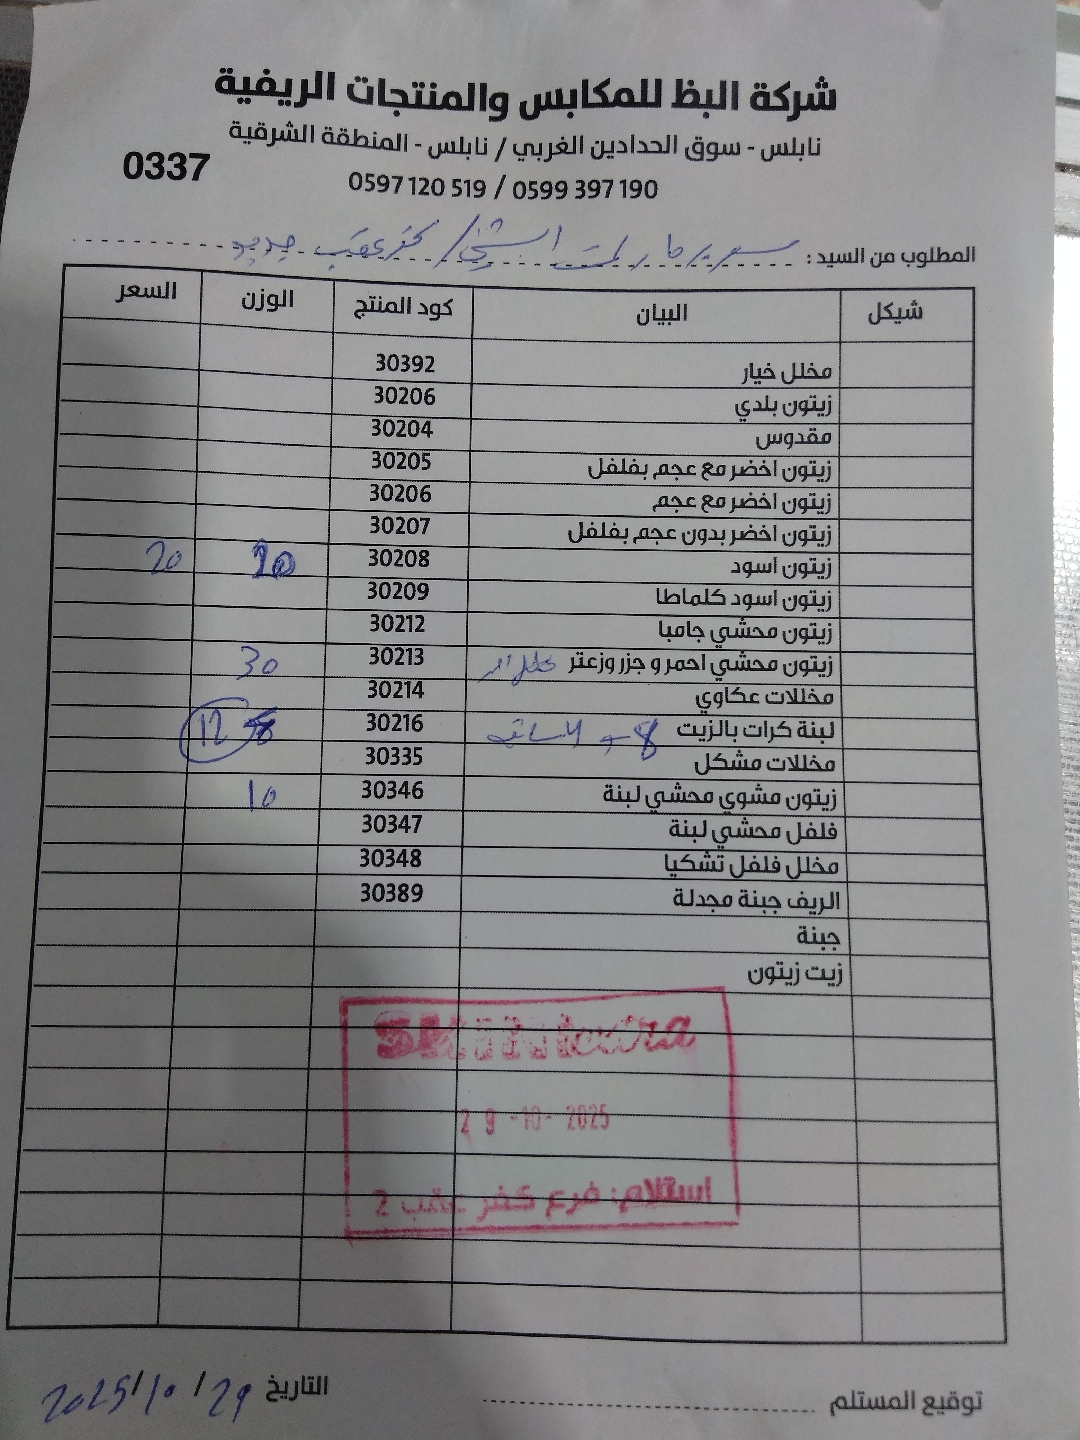 شركة البظ للمكابس والمنتجات الريفية
نابلس - سوق الحدادين الغربي / نابلس - المنطقة الشرقية
0337
0597 120 519 / 0599 397 190
المطلوب من السيد : سوبر ماركت الشني / كفر عقب جديد
شيكل البيان كود المنتج الوزن السعر
مخلل خيار 30392
زيتون بلدي 30206
مقدوس 30204
زيتون اخضر مع عجم بفلفل 30205
زيتون اخضر مع عجم 30206
زيتون اخضر بدون عجم بفلفل 30207
زيتون اسود 30208 20
زيتون اسود كلماطا 30209
زيتون محشي جامبا 30212
زيتون محشي احمر و جزر وزعتر 30213 30
مخللات عكاوي 30214
لبنة كرات بالزيت 8 30216 12
مخللات مشكل 30335
زيتون مشوي محشي لبنة 30346 10
فلفل محشي لبنة 30347
مخلل فلفل تشكيا 30348
الريف جبنة مجدلة 30389
جبنة
زيت زيتون
29 -10- 2025
استلام: فرع كفر عقب 2
توقيع المستلم
التاريخ 29 / 10 / 2025